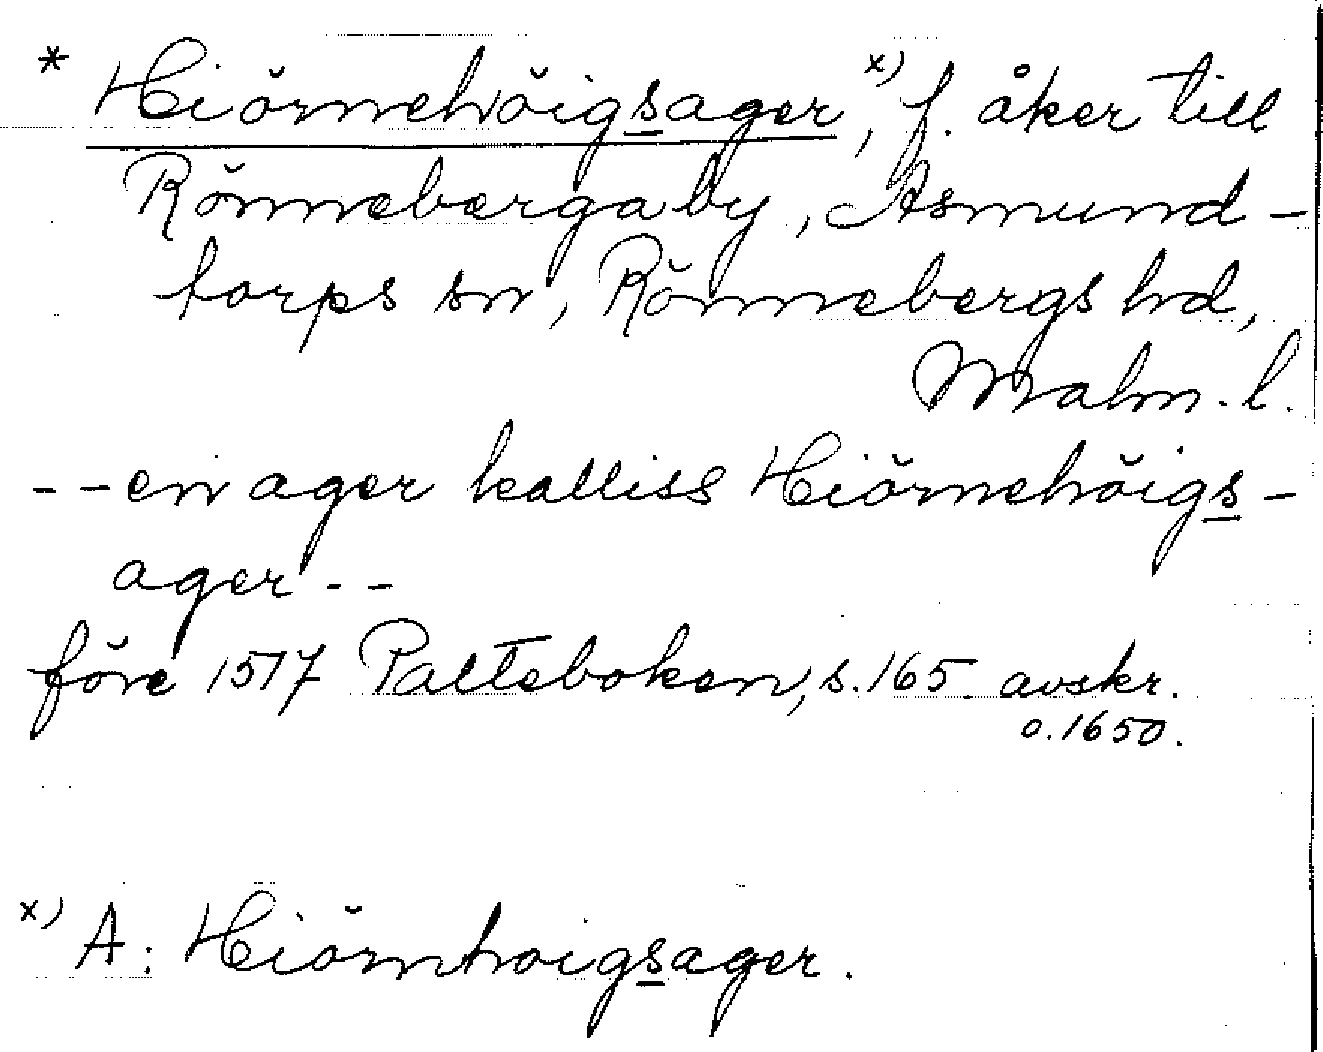 * Hiörnehöigsager,ˣ⁾ f. åker till
Rönneberga by, Asmund-
torps sn, Rönnebergs hd,
Malm. l.
-- en ager kalliss Hiörnehöigs-
ager --
före 1517 Palteboken, s. 165. avskr.
o. 1650.
x) A: Hiörnhoigsager.